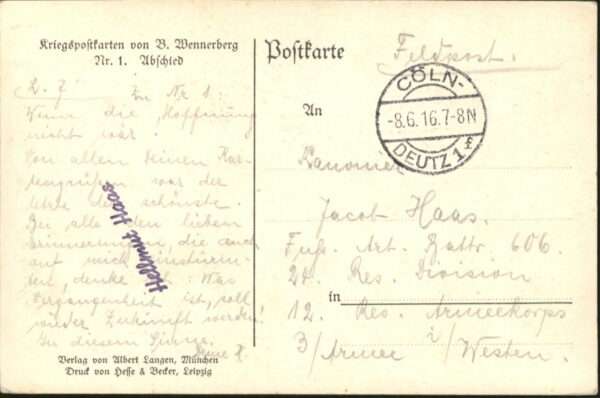 Kriegspostkarten von B. Wennerberg
Nr. 1. Abschied
L. J. Zu Nr 1:
Wenn die Hoffnung
nicht wär!
Von allen deinen Kar-
tengrüßen war der
letzte der schönste.
Bei alle den lieben
Erinnerungen, die auch
auf mich einstürm-
ten, denke ich: Was
Vergangenheit ist, soll
wieder Zukunft werden!
In diesem Sinne.
Deine H.
Hellmut Haas
Verlag von Albert Langen, München
Druck von Hesse & Becker, Leipzig
Postkarte
Feldpost.
CÖLN-
-8.6.16.7-8N
DEUTZ 1 f
An
Kanonier
Jacob Haas.
Fuß. Art. Battr. 606.
24. Res. Division
in
12. Res. Armeekorps
3/Armee i/Westen.